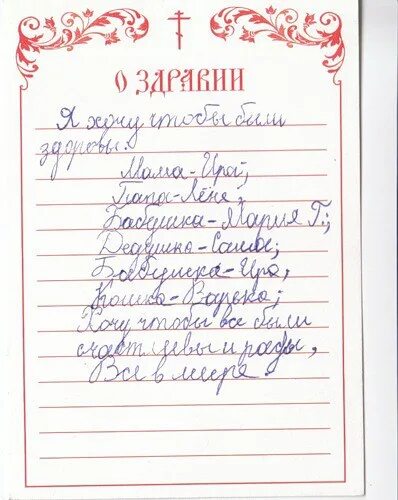 О ЗДРАВИИ
Я хочу чтобы были
здоровы:
Мама-Ира;
Папа-Лёня;
Бабушка-Мария Г.;
Дедушка-Саша;
Бабушка-Ира,
Кошка-Варька;
Хочу чтобы все были
счастливы и рады,
Все в мире.